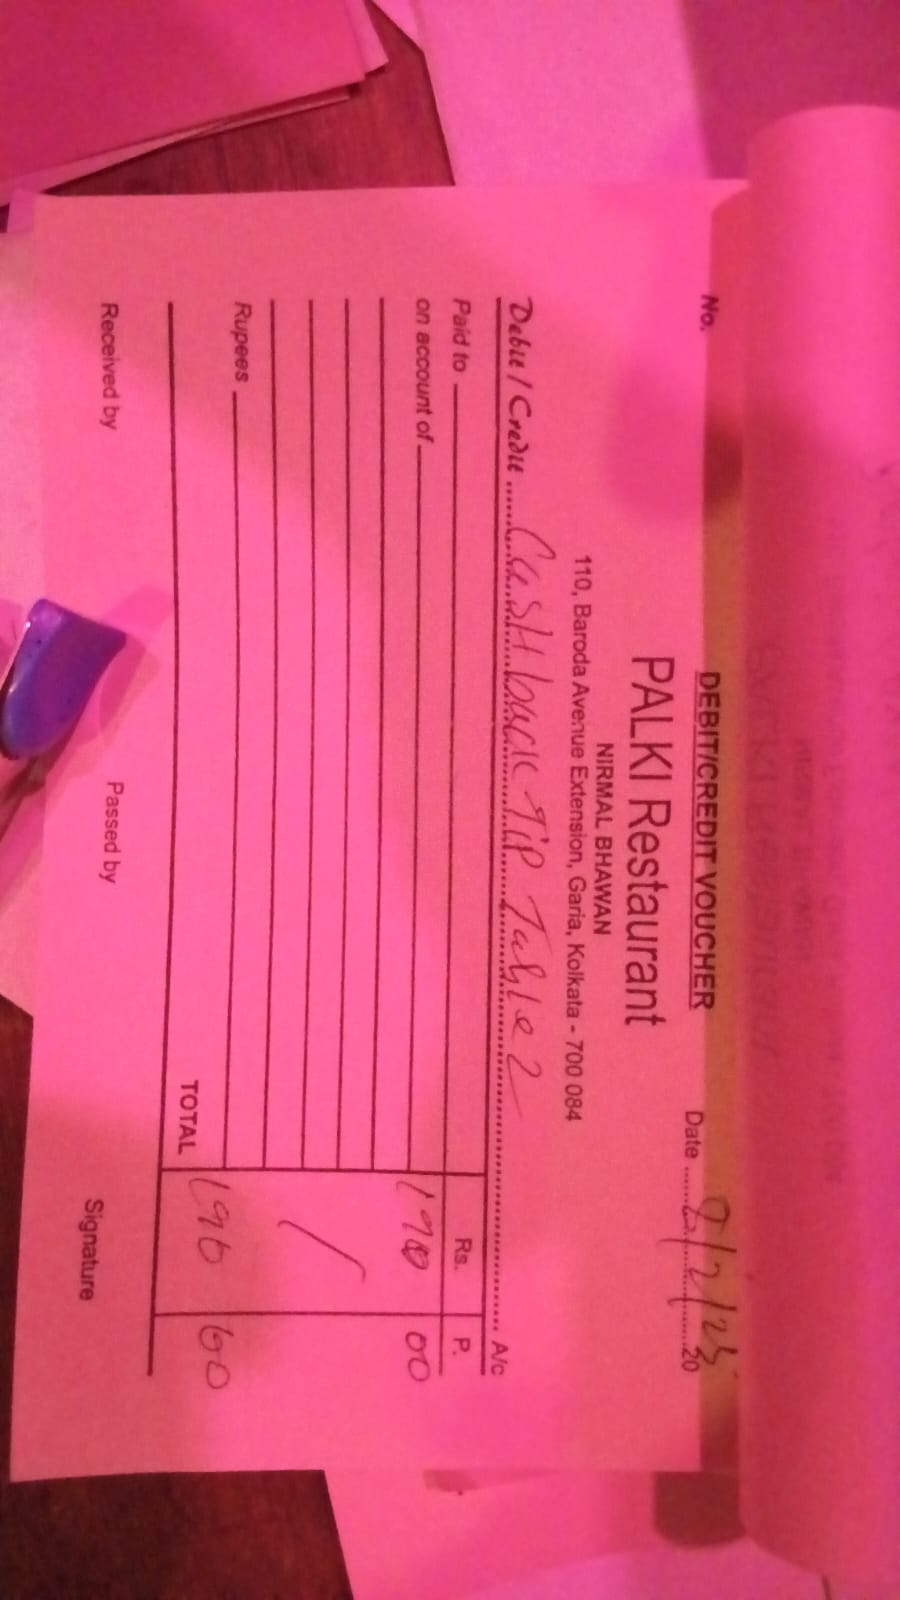 DEBIT/CREDIT VOUCHER
No. Date 9/2/23 20
PALKI Restaurant
NIRMAL BHAWAN
110, Baroda Avenue Extension, Garia, Kolkata - 700 084
Debit / Credit CasH back Tip Table 2 A/c
Paid to Rs. P.
on account of 190 00
Rupees
TOTAL 190 00
Received by Passed by Signature